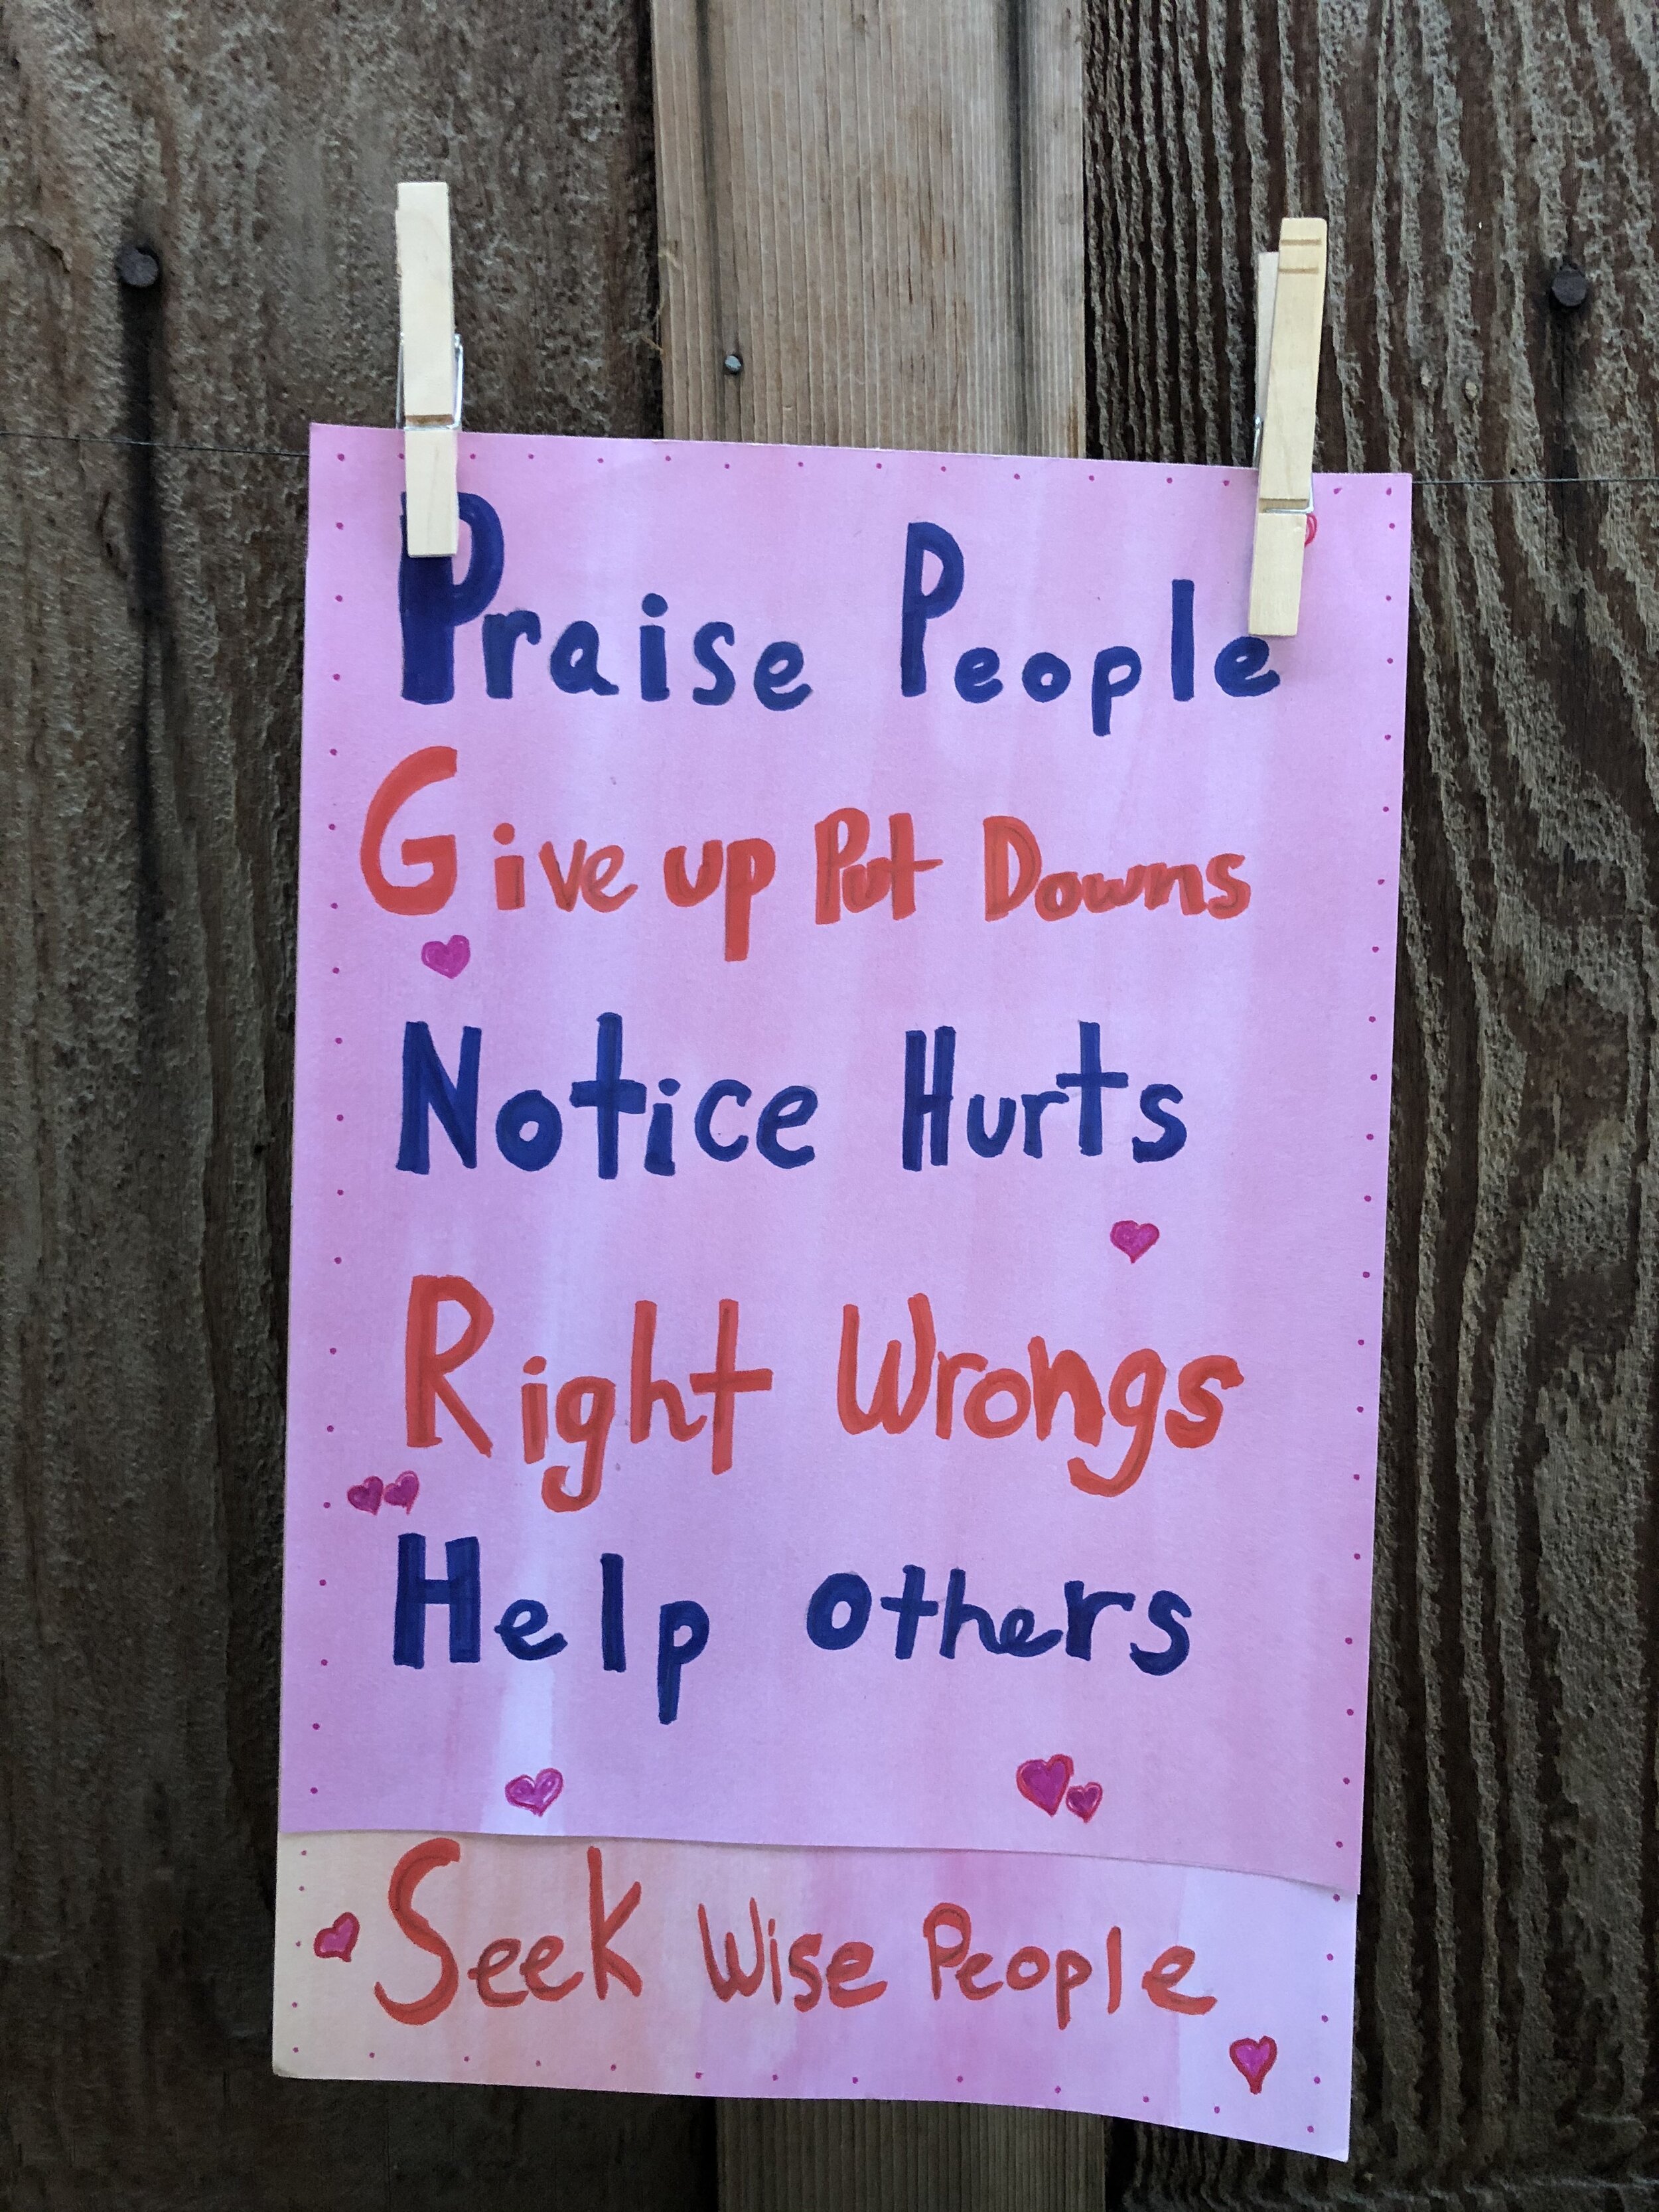 Praise People
Give up Put Downs
Notice Hurts
Right Wrongs
Help others
Seek Wise People